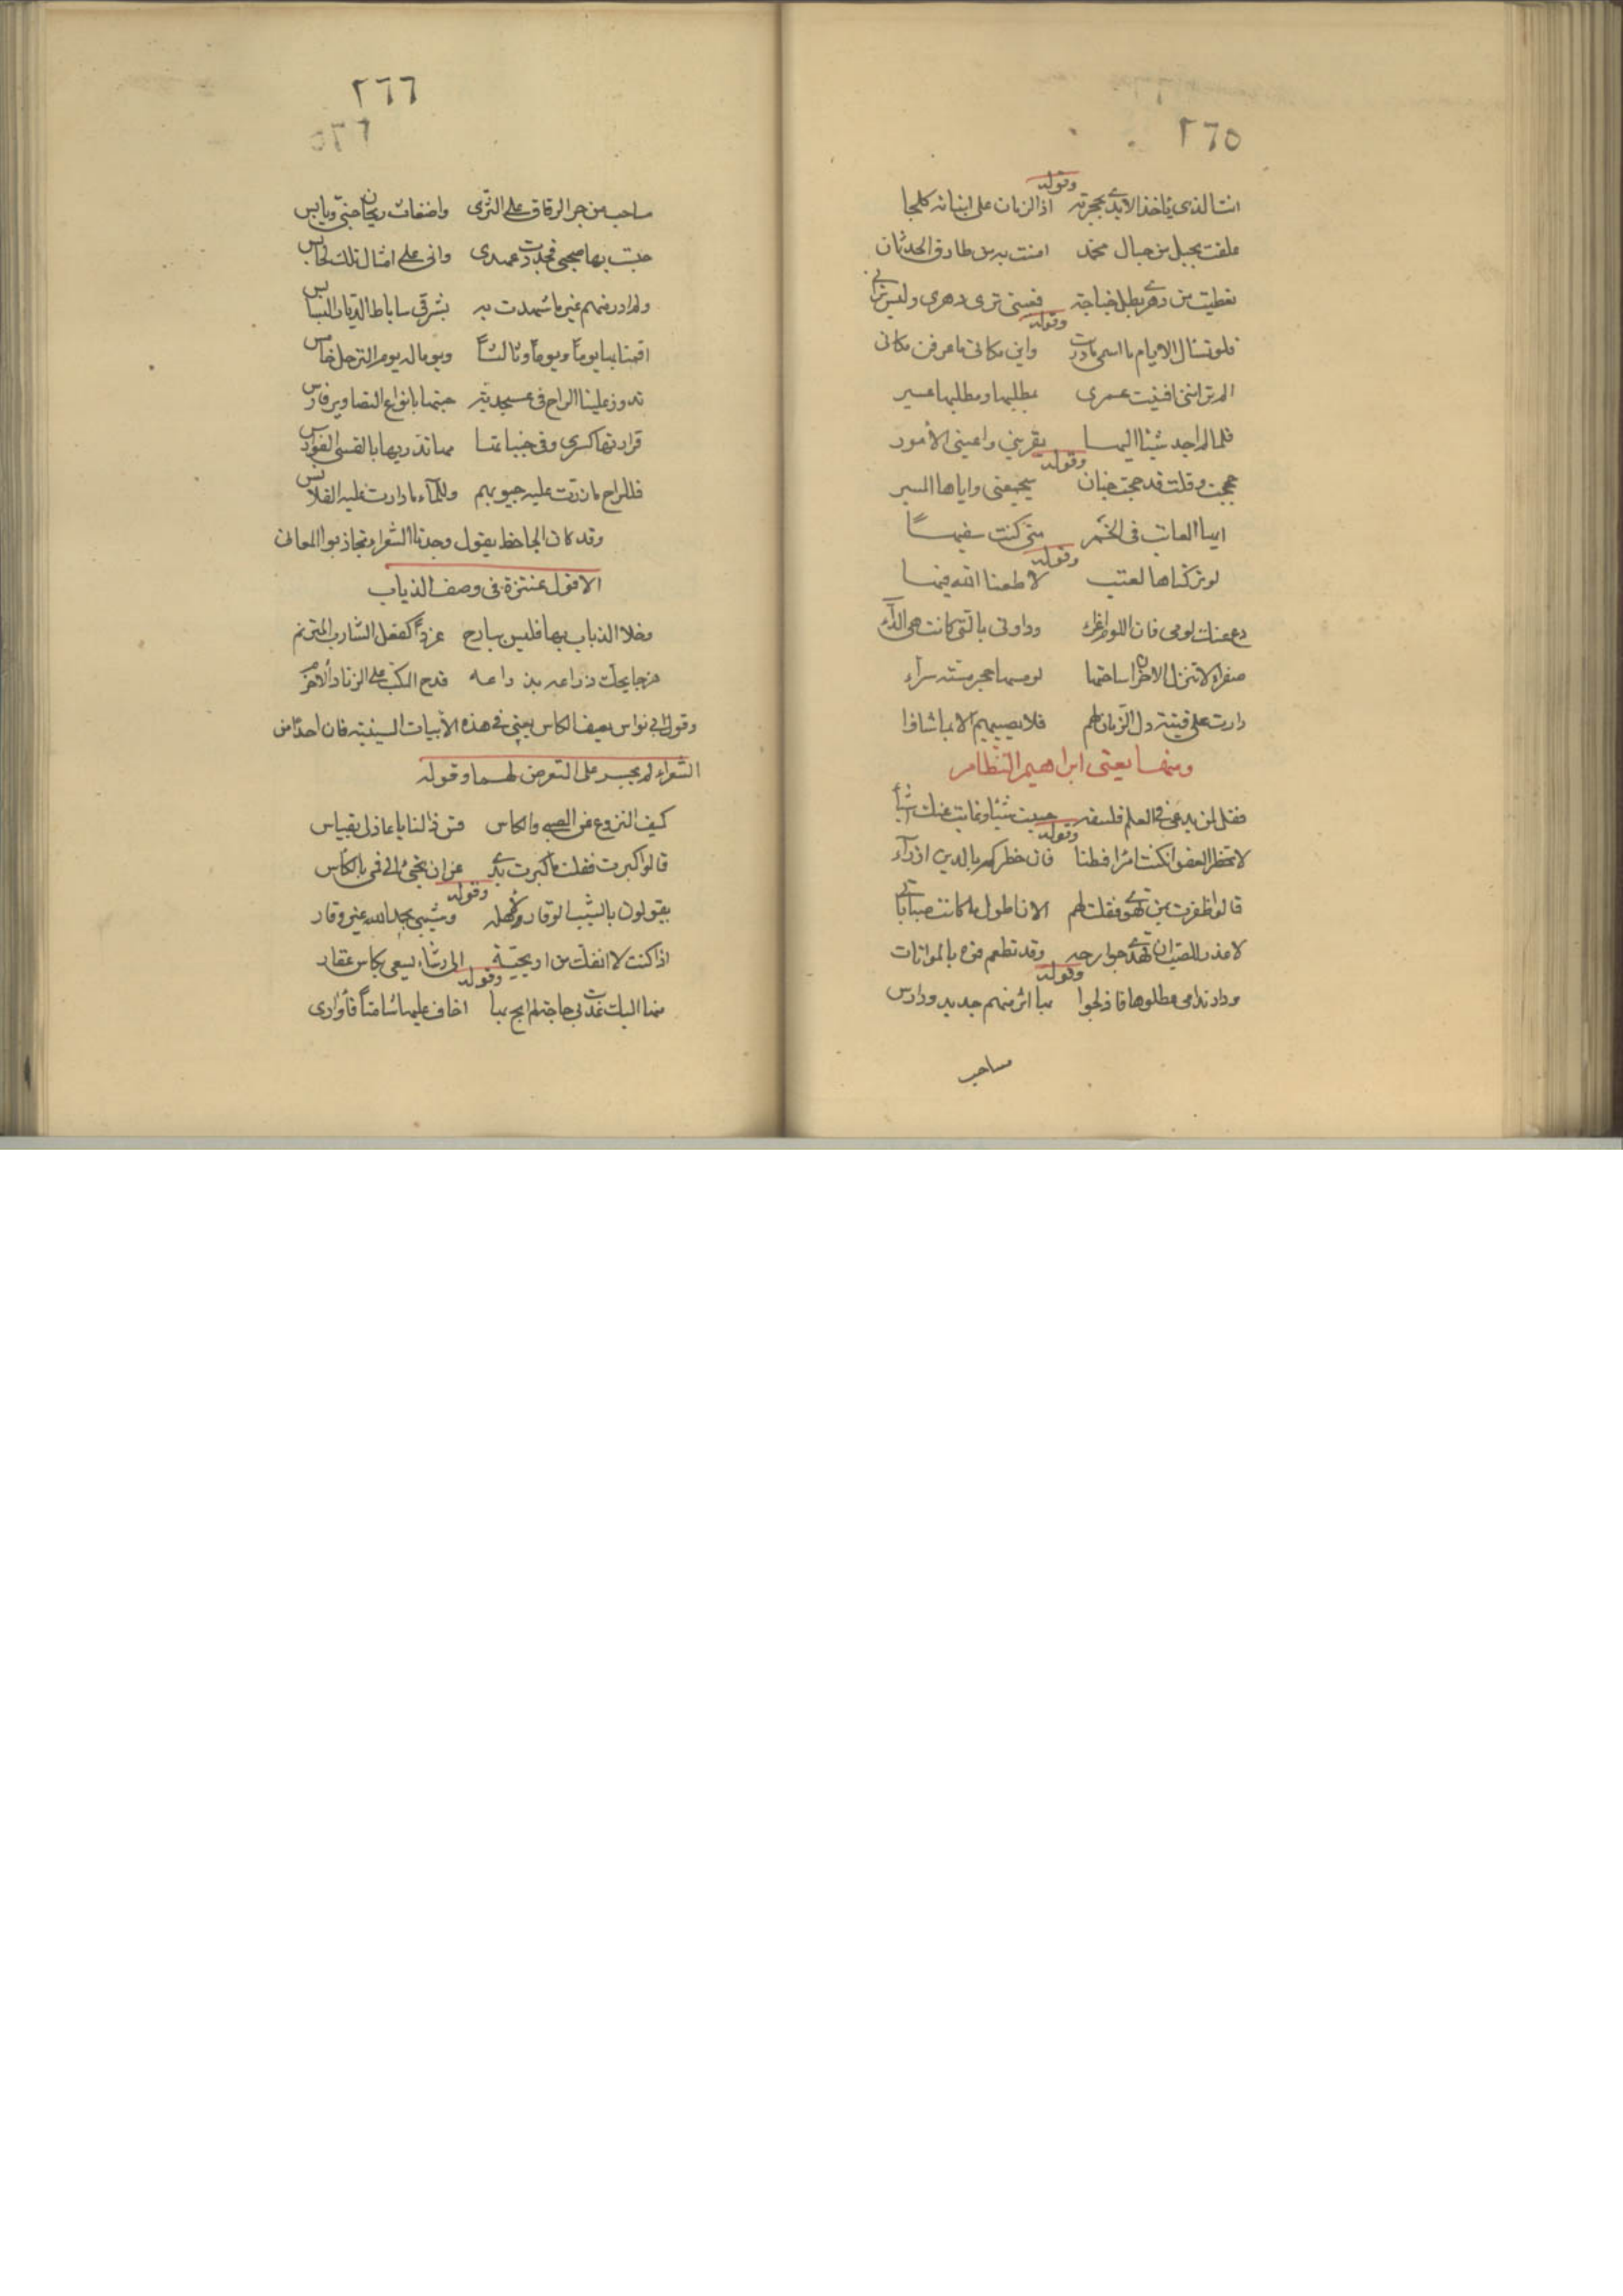 ٢٦٥
وقوله
انت الذي ياخذ الايدي بحجزته اذ الزمان على ابنائه كلحا
علقت بحبل من حبال محمد امنت به من طارق الحدثان
تغطيت من دهري بظل جناحه فعيني ترى دهري وليس يراني
وقوله
فلو تسال الايام ما اسمي ما درت واين مكاني ما عرفن مكاني
الم تر انني افنيت عمري بمطلبها ومطلبها عسير
فلما لم اجد شيئا اليها يقربني واعيتني الأمور
وقوله
حججت وقلت قد حجت جنان يجمعني واياها المسير
ايها العاتب في الخمر متى كنت سفيها
وقوله
لو تركناها لعتب لاطعنا الله فيها
دع عنك لومي فان اللوم اغراء وداوني بالتي كانت هي الداء
صفراء لا تنزل الاحزان ساحتها لو مسها حجر مسته سراء
دارت على فتية دل الزمان لهم فلا يصيبهم الا بما شاؤا
ومنها يعني ابراهيم النظام
فقل لمن يدعي في العلم فلسفة حفظت شيئا وغابت عنك اشيا
وقوله
لا تحظر العفو ان كنت امرا فطنا فان حظركه بالدين ازرآء
قالوا ظفرت بمن تهوى فقلت لهم الان اطول ما كانت صباباتي
لا عذر للصب ان تهدى جوارحه وقد تطعم فوه بالمواتات
وقوله
ودار ندامى عطلوها فادلجوا بها اثر منهم جديد ودارس
مساحب
٢٦٦
مساحب من جر الزقاق على الثرى واضغاث ريحان جني ويابس
حبست بها صحبي فجددت عهدي واني على امثال تلك لحابس
ولم ادر منهم غير ما شهدت به بشرقي ساباط الديار البسابس
اقمنا بها يوماً ويوماً وثالثاً ويوما له يوم الترحل خامس
تدور علينا الراح في عسجدية حبتها بانواع التصاوير فارس
قرارتها كسرى وفي جنباتها مها تدريها بالقسي الفوارس
فللراح ما زرت عليه جيوبهم وللمآء ما دارت عليه القلانس
وقد كان الجاحظ يقول وجدنا الشعراء تجاذبوا المعاني
الا قول عنترة في وصف الذباب
وخلا الذباب بها فليس ببارح غرداً كفعل الشارب المترنم
هزجا يحك ذراعه بذراعه قدح المكب على الزناد الأجذم
وقول ابي نواس يصف الكاس يعني في هذه الأبيات السينية فان احدا من
الشعراء لم يجسر على التعرض لهما وقوله
كيف النزوع عن الصبى والكاس قس ذا لنا يا عاذلي بقياس
قالوا كبرت فقلت ما كبرت يدي عن ان تخبي الى فمي بالكأس
وقوله
يقولون بالشيب الوقار لأهله وشيبي بحمد الله غير وقار
اذا كنت لا انفك من اريحية الى رشاء يسعى بكاس عقار
وقوله
غدت بي حاجة لم ابح بها اخاف عليها شامتاً فأداري